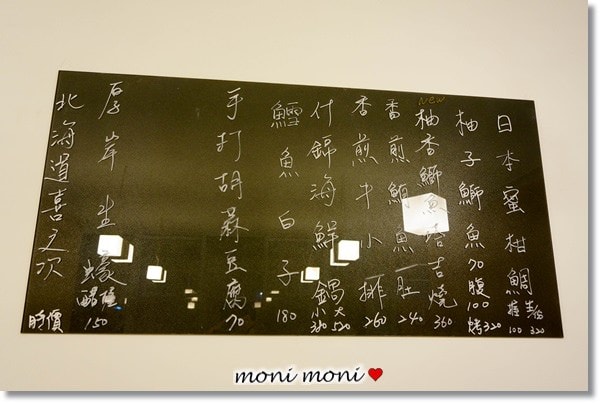 日本蜜柑鯛 握100 生320
柚子鰤魚70 腹100 烤320
new
柚香鰤魚塔吉燒360
香煎魚肚240
香煎牛小排260
什錦海鮮鍋 小320 大520
鱈魚白子180
手打胡麻豆腐70
厚岸生蠔 醋 燒 150
北海道喜之次 時價
moni moni